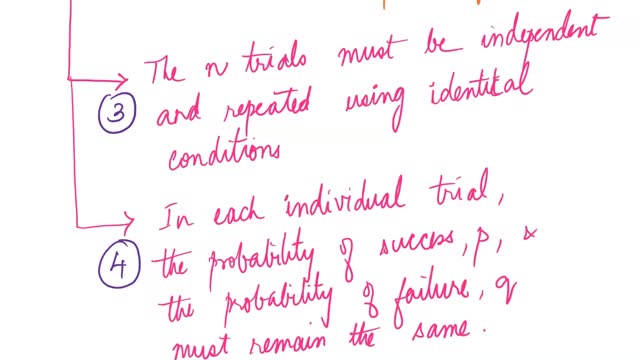 The n trials must be independent
③ and repeated using identical
conditions
In each individual trial,
④ the probability of success, p, &
the probability of failure, q
must remain the same.